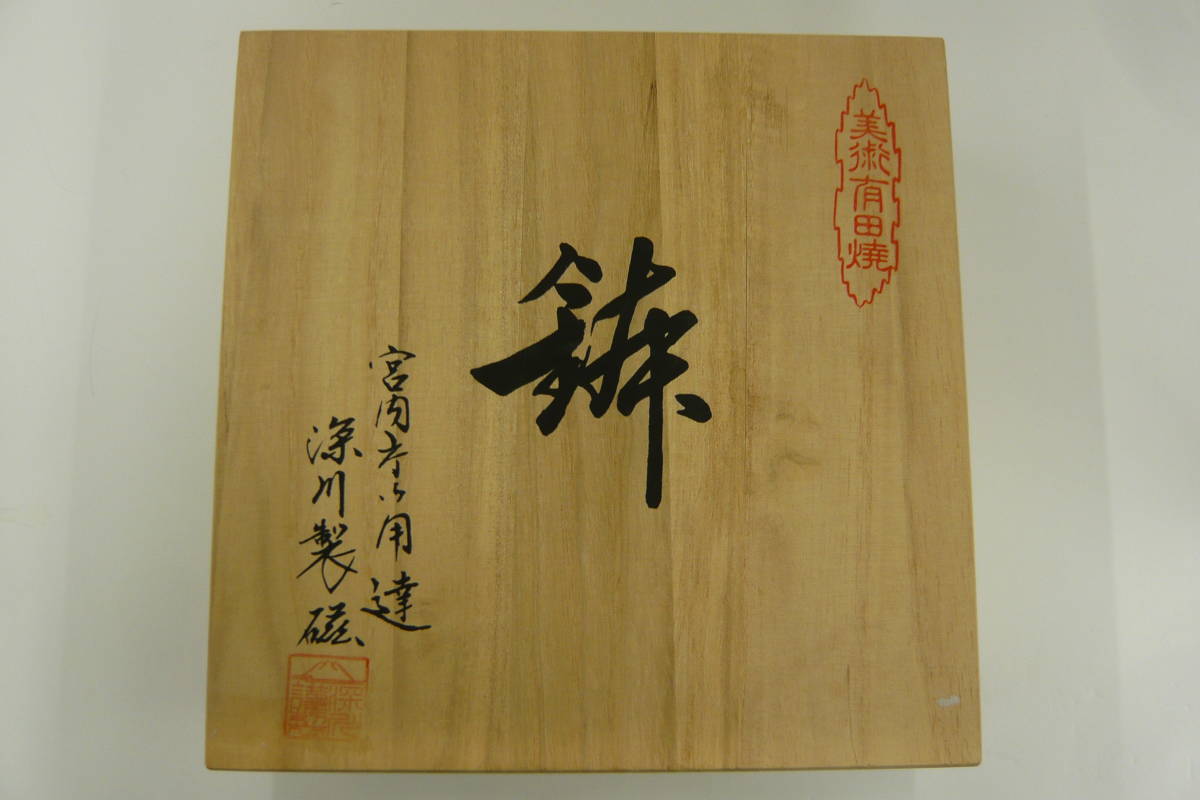 美術有田焼
鉢
宮内庁御用達
深川製磁
深川謹製